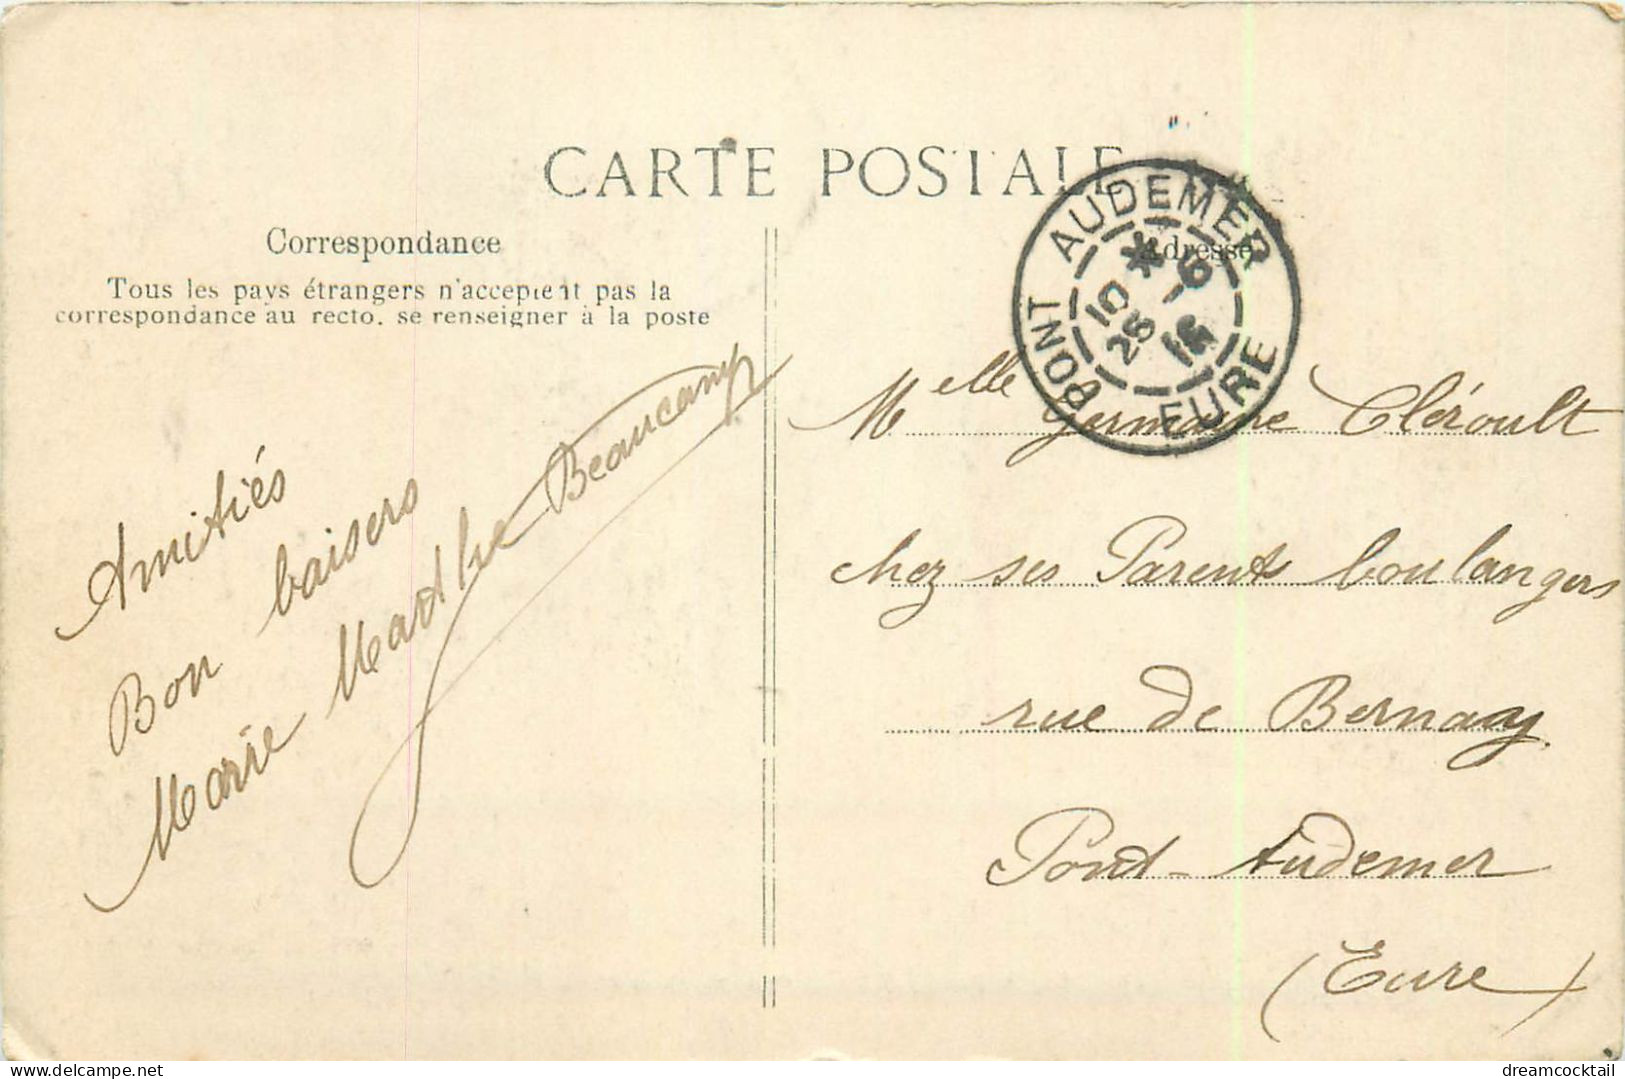 CARTE POSTALE
Correspondance
Tous les pays étrangers n'acceptent pas la
correspondance au recto, se renseigner à la poste
Amitiés
Bon baisers
Marie Beaucamp
Adresse
PONT AUDEMER
* 10 26 -6
EURE
Melle Germaine Cléroult
chez ses Parents boulangers
rue de Bernay
Pont-Audemer
(Eure)
www.delcampe.net
dreamcocktail